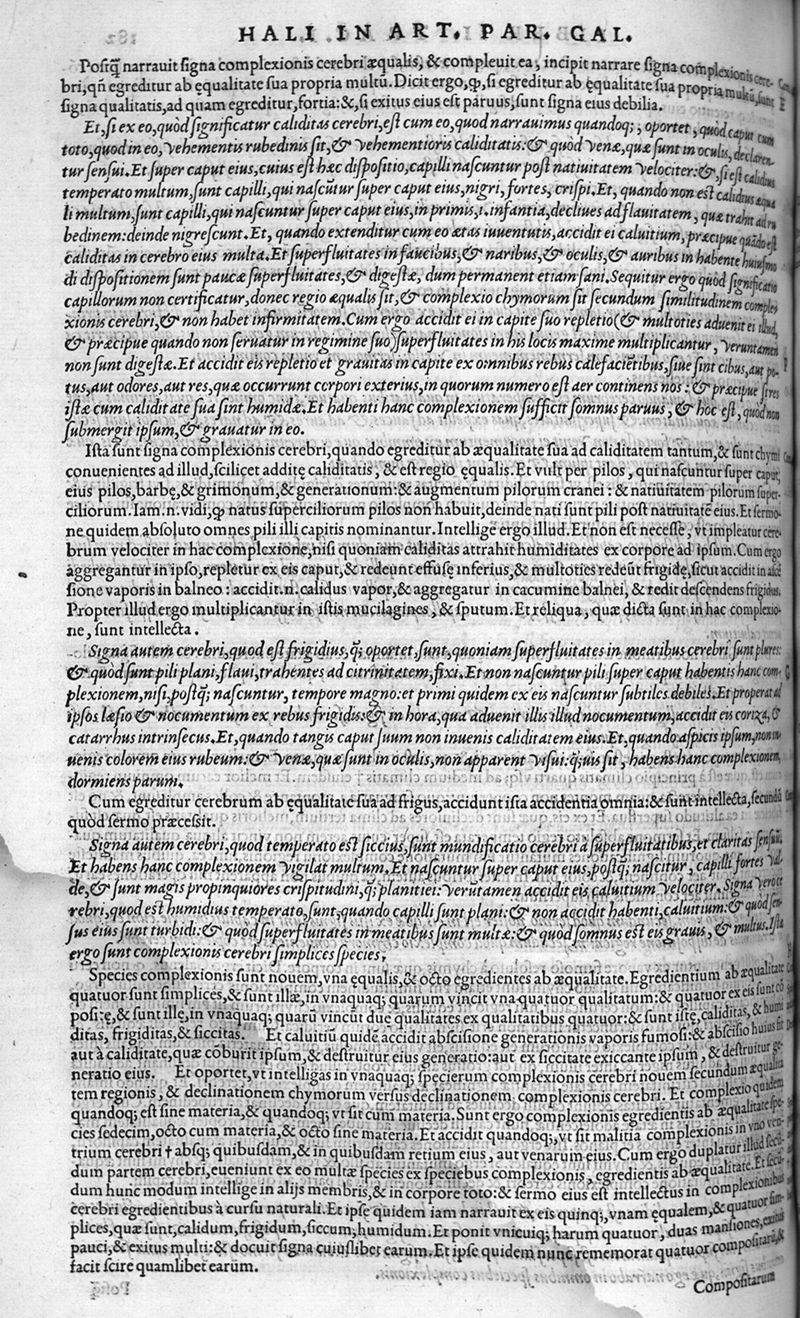 HALI IN ART. PAR. GAL.
Postq̃ narrauit signa complexionis cerebri æqualis, & compleuit ea, incipit narrare signa complexionis cere-
bri, qñ egreditur ab ęqualitate sua propria multu. Dicit ergo, ꝙ, si egreditur ab ęqualitate sua propria multũ, sunt
signa qualitatis, ad quam egreditur, fortia: &, si exitus eius est paruus, sunt signa eius debilia.
Et, si ex eo, quòd significatur caliditas cerebri, est cum eo, quod narrauimus quandoq;, oportet, quòd caput cum
toto, quod in eo, vehementis rubedinis sit, & vehementioris caliditatis: & quòd venæ, quæ sunt in oculis, declaren-
tur sensui. Et super caput eius, cuius est hæc dispositio, capilli nascuntur post natiuitatem velociter: &, si est calidius
temperato multum, sunt capilli, qui nascũtur super caput eius, nigri, fortes, crispi. Et, quando non est calidius æqua
li multum, sunt capilli, qui nascuntur super caput eius, in primis, .i. infantia, decliues ad flauitatem, quæ trahit ad ru
bedinem: deinde nigrescunt. Et, quando extenditur cum eo ætas iuuentutis, accidit ei caluitium, præcipue quãdo est
caliditas in cerebro eius multa. Et superfluitates in faucibus, & naribus, & oculis, & auribus in habente huiusmo
di dispositionem sunt paucæ superfluitates, & digestæ, dum permanent etiam sani. Sequitur ergo quòd significatio
capillorum non certificatur, donec regio æqualis sit, & complexio chymorum sit secundum similitudinem comple
xionis cerebri, & non habet infirmitatem. Cum ergo accidit ei in capite suo repletio (& multoties aduenit ei illud,
& præcipue quando non seruatur in regimine suo) superfluitates in his locis maxime multiplicantur, veruntamen
non sunt digestæ. Et accidit eis repletio et grauitas in capite ex omnibus rebus calefaciẽtibus, siue sint cibus, aut po
tus, aut odores, aut res, quæ occurrunt corpori exterius, in quorum numero est aer continens nos: & præcipue si res
istæ cum caliditate sua sint humidæ. Et habenti hanc complexionem sufficit somnus paruus, & hoc est, quod non
submergit ipsum, & grauatur in eo.
Ista sunt signa complexionis cerebri, quando egreditur ab æqualitate sua ad caliditatem tantum, & sunt chymi
conuenientes ad illud, scilicet additę caliditatis, & est regio ęqualis. Et vult per pilos, qui nascuntur super caput,
eius pilos, barbę, & grimonum, & generationum: & augmentum pilorum cranei: & natiuitatem pilorum super-
ciliorum. Iam .n. vidi, ꝙ natus superciliorum pilos non habuit, deinde nati sunt pili post natiuitatẽ eius. Et sermo-
ne quidem absoluto omnes pili illi capitis nominantur. Intellige ergo illud. Et non est necesse, vt impleatur cere-
brum velociter in hac complexione, nisi quoniam caliditas attrahit humiditates ex corpore ad ipsum. Cum ergo
aggregantur in ipso, repletur ex eis caput, & redeunt effusę inferius, & multoties redeũt frigidę, sicut accidit in ascẽ
sione vaporis in balneo: accidit .n. calidus vapor, & aggregatur in cacumine balnei, & redit descendens frigidus.
Propter illud ergo multiplicantur in istis mucilagines, & sputum. Et reliqua, quæ dicta sunt in hac complexio-
ne, sunt intellecta.
Signa autem cerebri, quod est frigidius, q̃; oportet, sunt, quoniam superfluitates in meatibus cerebri sunt plures:
& quòd sunt pili plani, flaui, trahentes ad citrinitatem, fixi. Et non nascuntur pili super caput habentis hanc com-
plexionem, nisi, postq̃; nascuntur, tempore magno: et primi quidem ex eis nascuntur subtiles debiles. Et properat ad
ipsos læsio & nocumentum ex rebus frigidis: & in hora, qua aduenit illis illud nocumentum, accidit eis coriza, &
catarrhus intrinsecus. Et, quando tangis caput suum non inuenis caliditatem eius. Et, quando aspicis ipsum, non in
uenis colorem eius rubeum: & venæ, quæ sunt in oculis, non apparent visui: q̃;uis sit, habens hanc complexionem,
dormiens parum.
Cum egreditur cerebrum ab ęqualitate sua ad frigus, accidunt ista accidentia omnia: & sunt intellecta, secundũ
quòd sermo præcessit.
Signa autem cerebri, quod temperato est siccius, sunt mundificatio cerebri à superfluitatibus, et claritas sensuũ.
Et habens hanc complexionem vigilat multum. Et nascuntur super caput eius, postq̃; nascitur, capilli fortes val-
de, & sunt magis propinquiores crispitudini, q̃; planitiei: verũtamen accidit eis caluitium velociter. Signa vero ce
rebri, quod est humidius temperato, sunt, quando capilli sunt plani: & non accidit habenti, caluitium: & quod sen-
sus eius sunt turbidi: & quòd superfluitates in meatibus sunt multæ: & quòd somnus est eis grauis, & multus. Ista
ergo sunt complexionis cerebri simplices species.
Species complexionis sunt nouem, vna equalis, & octo egredientes ab æqualitate. Egredientium ab æqualitate
quatuor sunt simplices, & sunt illæ, in vnaquaq; quarum vincit vna quatuor qualitatum: & quatuor ex eis sunt cõ
positę, & sunt illę, in vnaquaq; quarũ vincũt duę qualitates ex qualitatibus quatuor: & sunt istę, caliditas, & humi
ditas, frigiditas, & siccitas. Et caluitiũ quidẽ accidit abscisione generationis vaporis fumosi: & abscisio huius fit
aut à caliditate, quæ cõburit ipsum, & destruitur eius generatio: aut ex siccitate exiccante ipsum, & destruitur ge-
neratio eius. Et oportet, vt intelligas in vnaquaq; specierum complexionis cerebri nouem secundum æqualita
tem regionis, & declinationem chymorum versus declinationem complexionis cerebri. Et complexio quidem
quandoq; est sine materia, & quandoq; vt sit cum materia. Sunt ergo complexionis egredientis ab æqualitate spe-
cies sedecim, octo cum materia, & octo sine materia. Et accidit quandoq;, vt sit malitia complexionis in vno ven-
trium cerebri † absq; quibusdam, & in quibusdam retium eius, aut venarum eius. Cum ergo duplatur illud secun
dum partem cerebri, eueniunt ex eo multæ species ex speciebus complexionis, egredientis ab æqualitate. Et secun
dum hunc modum intellige in alijs membris, & in corpore toto: & sermo eius est intellectus in complexionibus
cerebri egredientibus à cursu naturali. Et ipse quidem iam narrauit ex eis quinq;, vnam ęqualem, & quatuor sim-
plices, quæ sunt, calidum, frigidum, siccum, humidum. Et ponit vnicuiq; harum quatuor, duas mansiones, exitus
pauci, & exitus multi: & docuit signa cuiuslibet earum. Et ipse quidem nunc rememorat quatuor compositarũ, &
facit scire quamlibet earum.
Compositarum